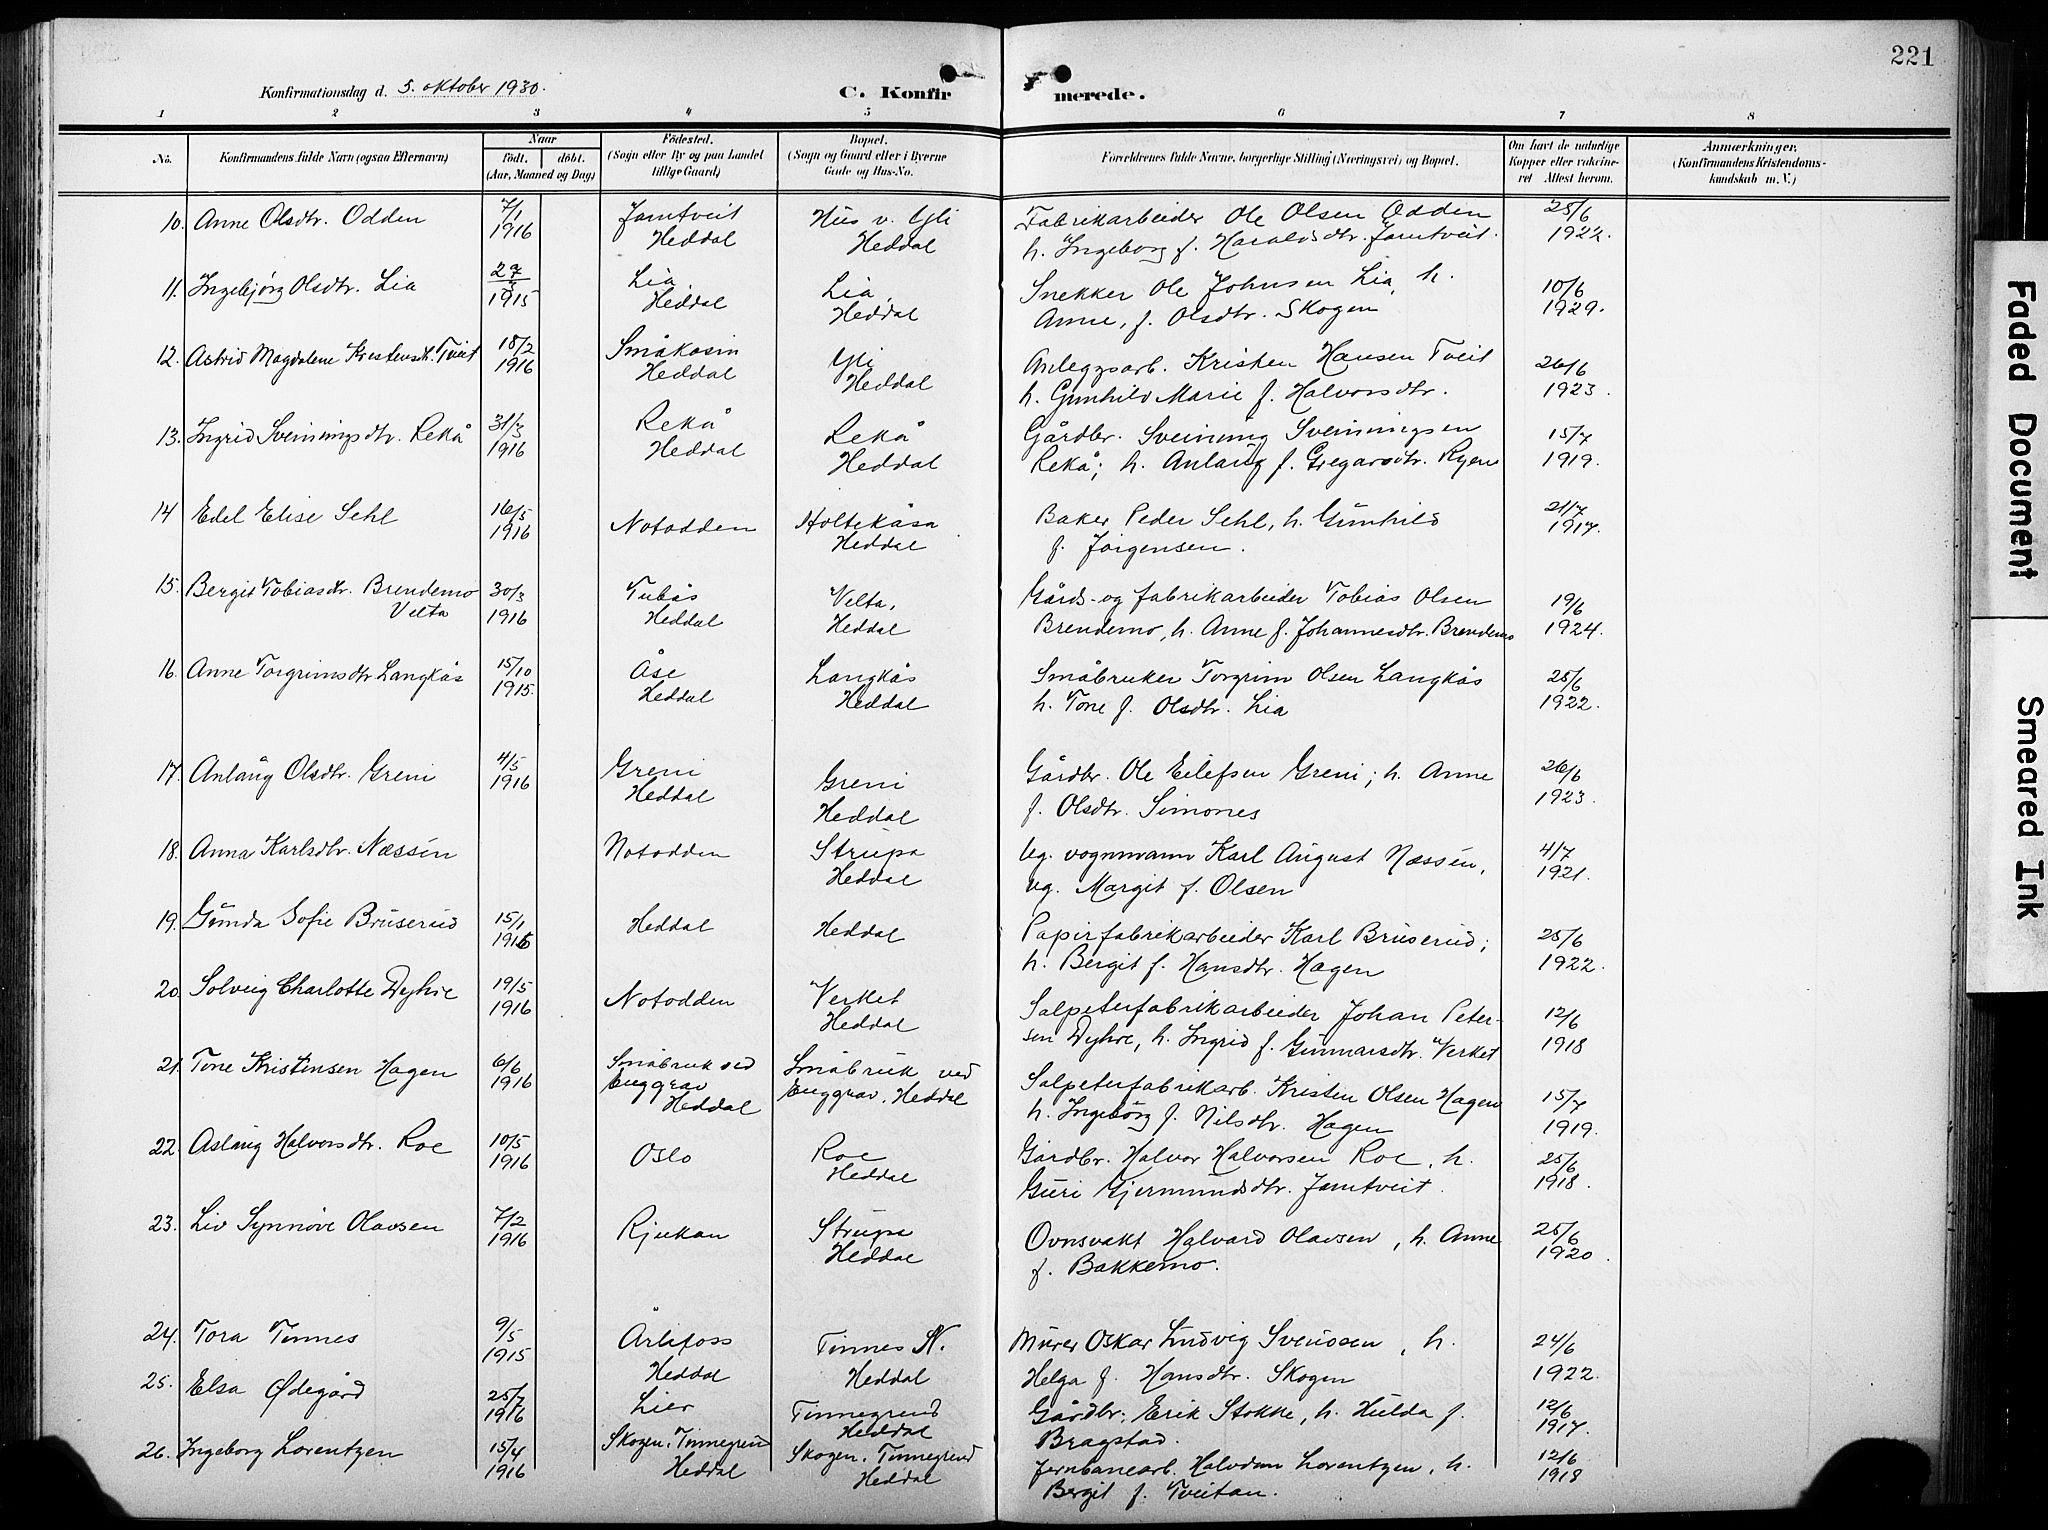 221
Konfirmationsdag d. 5. oktober 1930.
C. Konfirmerede.
1 2 3 4 5 6 7 8
No. Konfirmandens fulde Navn (ogsaa Efternavn) Naar født. døbt. (Aar, Maaned og Dag) Fødested. (Sogn eller By og paa Landet tillige Gaard) Bopæl. (Sogn og Gaard eller i Byerne Gade og Hus-No. Forældrenes fulde Navne, borgerlige Stilling (Næringsvei) og Bopæl. Om havt de naturlige Kopper eller vakcineret Attest herom. Anmærkninger. (Konfirmandens Kristendomskundskab m. V.)
10. Anne Olsdtr. Odden 7/1 1916 Jamtveit Heddal Hus v. Yli Heddal Fabrikarbeider Ole Olsen Odden 25/6
h. Ingeborg f. Haraldsdtr. Jamtveit. 1922.
11. Ingebjørg Olsdtr. Lia 27/3 1915 Lia, Heddal Lia, Heddal Snekker Ole Johnsen Lia, h. 10/6
Anne, f. Olsdtr. Skogen 1929.
12. Astrid Magdalene Kristensdt. Tveit 18/2 1916 Småkåsin Heddal Yli Heddal Anleggsarb. Kristen Hansen Tveit 26/6
h. Gunhild Marie f. Halvorsdtr. 1923.
13. Ingrid Sveinungsdtr. Rekå 31/3 1916 Rekå Heddal Rekå Heddal Gårdbr. Sveinung Sveinungsen 15/7
Rekå; h. Anlaug f. Gregarsdtr. Ryen 1919.
14 Edel Elise Sehl 16/5 1916 Notodden Holtekåsa Heddal Baker Peder Sehl, h. Gunhild 21/7
f. Jørgensen. 1917.
15. Bergit Tobiasdtr. Brendemo Velta 30/3 1916 Tubås Heddal Velta, Heddal Gårds- og fabrikarbeider Tobias Olsen 19/6
Brendemo, h. Anne f. Johannesdtr. Brendemo 1924.
16. Anne Torgrimsdtr Langkås 15/10 1915. Åse Heddal Langkås Heddal Småbruker Torgrim Olsen Langkås 25/6
h. Tone f. Olsdtr. Lia 1922.
17. Anlaug Olsdtr. Greni 4/5 1916 Greni Heddal Greni Heddal Gårdbr. Ole Eilefsen Greni; h. Anne 26/6
f. Olsdtr. Simones 1923.
18. Anna Karlsdtr. Næssén Notodden Strupa Heddal Ug. vognmann Karl August Næssén, 4/7
ug. Margit f. Olsen 1921.
19. Gunda Sofie Bruserud 15/1 1916 Heddal Heddal Papirfabrikarbeider Karl Bruserud; 25/6
h. Bergit f. Hansdtr. Hagen 1922.
20. Solveig Charlotte Dyhre 19/5 1916 Notodden Verket Heddal Salpeterfabrikarbeider Johan Peter- 12/6
sen Dyhre, h. Ingrid f. Gunnarsdtr. Verket 1918
21. Tone Kristensen Hagen 6/6 1916 Småbruk ved Enggrav Heddal Småbruk ved Enggrav. Heddal Salpeterfabrikarb. Kristen Olsen Hagen 15/7
h. Ingebörg f. Nilsdtr. Hagen 1919.
22. Aslaug Halvorsdtr. Roe 10/5 1916 Oslo Roe Heddal Gårdbr. Halvor Halvorsen Roe, h. 25/6
Guri Gjermundsdtr. Jamtveit. 1918.
23. Liv Synnöve Olavsen 7/2 1916 Rjukan Strupa Heddal Ovnsvakt Halvard Olavsen, h. Anne 25/6
f. Bakkemo. 1920.
24. Tora Tinnes 9/5 1915 Årlifoss Heddal Tinnes N. Heddal Murer Oskar Ludvig Svendsen, h. 24/6
Helga f. Hansdtr. Skogen 1922.
25. Elsa Ødegård 25/7 1916 Lier Tinnegrend Heddal Gårdbr. Erik Stokke, h. Hulda f. 12/6
Bragstad. 1917.
26. Ingeborg Lorentzen 15/4 1916 Skogen. Tinnegrend Heddal Skogen. Tinnegrend Heddal Jernbanearb. Halvdan Lorentzen, h. 12/6
Bergit f. Tveitan. 1918
Faded Document
Smeared Ink